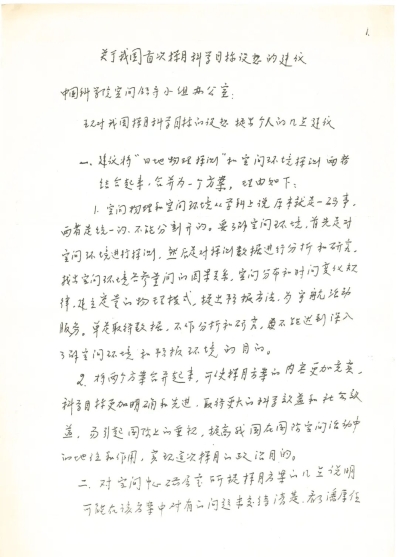 1.
关于我国首次探月科学目标设想的建议
中国科学院空间领导小组办公室:
现对我国探月科学目标的设想提出个人的几点建议
一、建议将“日地物理探测”和空间环境探测两者
结合起来,合并为一个方案,理由如下:
1. 空间物理和空间环境从学科上说原来就是一码事,
两者是统一的,不能分割开的。要了解空间环境,首先是对
空间环境进行探测,然后是对探测数据进行分析和研究,
找出空间环境各参量间的因果关系,空间分布和时间变化规
律,建立定量的物理模式,提出预报方法,为宇航活动
服务。单是取得数据,不作分析和研究,是不能达到深入
了解空间环境和预报环境的目的。
2. 将两个方案合并起来,可使探月方案的内容更加充实,
科学目标更加明确和先进,取得更大的科学效益和社会效
益,易引起国际上的重视,提高我国在国际空间活动中
的地位和作用,实现这次探月的政治目的。
二、对空间中心 所提探月方案的几点说明
可能在该方案中对有的问题未交待清楚,